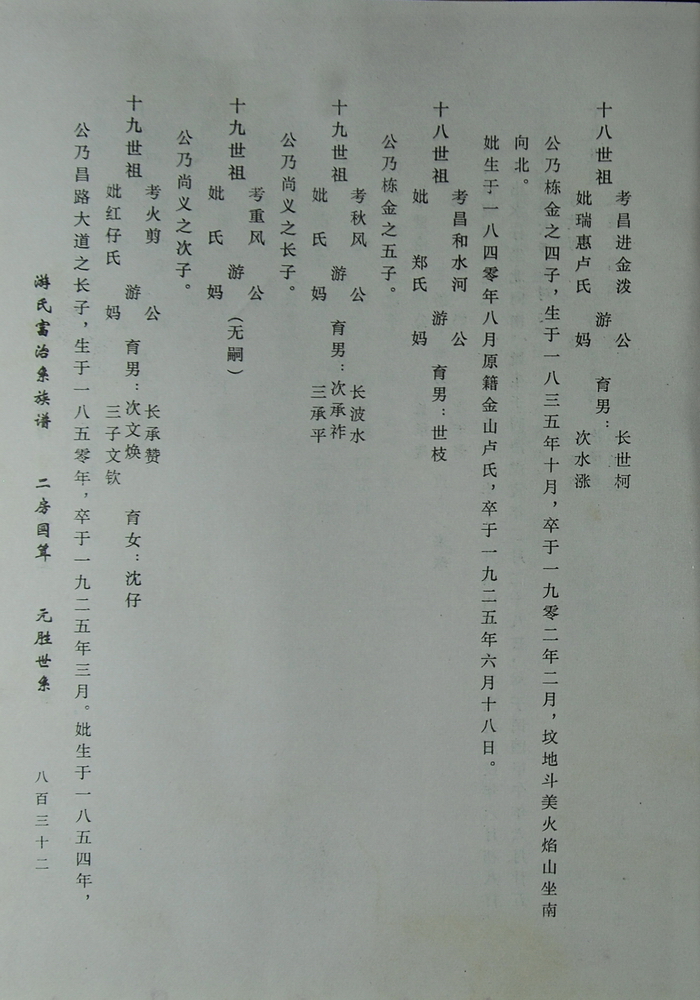 考昌进金泼 公 长世柯
十八世祖 游 育男：
妣瑞惠卢氏 妈 次水涨
公乃栋金之四子，生于一八三五年十月，卒于一九零二年二月，坟地斗美火焰山坐南
向北。
妣生于一八四零年八月原籍金山卢氏，卒于一九二五年六月十八日。
考昌和水河 公
十八世祖 游 育男：世枝
妣 郑氏 妈
公乃栋金之五子。
考秋风 公 长波水
十九世祖 游 育男：次承祚
妣 氏 妈 三承平
公乃尚义之长子。
考重风 公
十九世祖 游 （无嗣）
妣 氏 妈
公乃尚义之次子。
考火剪 公 长承赞
十九世祖 游 育男：次文焕 育女：沈仔
妣红仔氏 妈 三子文钦
公乃昌路大道之长子，生于一八五零年，卒于一九二五年三月。妣生于一八五四年，
游氏富治系族谱 二房国算 元胜世系 八百三十二